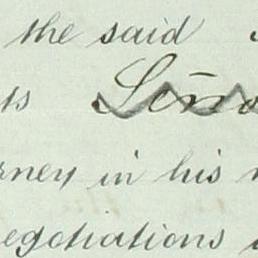 the said
ts
rney in his
egotiations